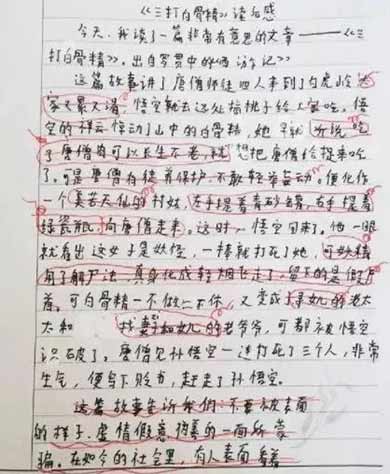 《三打白骨精》读后感
今天,我读了一篇非常有意思的文章——《三
打白骨精》,出自罗贯中的《西游记》
这篇故事讲了唐僧师徒四人来到了白虎岭,
家又累又渴,悟空就去远处摘桃子给大家吃。悟
空的祥云惊动了山中的白骨精,她早就听说吃
了唐僧肉可以长生不老,就想把唐僧给捉来吃
了。可是唐僧有徒弟保护,不敢轻举妄动。便化作
一个美若天仙的村姑,左手提着青砂罐,右手提着
绿瓷瓶,向唐僧走来。这时,悟空回来了。他一眼
就看出这女子是妖怪,一棒就打死了她,可妖精
用了解尸法,真身化成轻烟飞走了,留下的是假尸
首。可白骨精一不做二不休,又变成了的老太
太和找妻和女儿的老爷爷,可都被悟空
识破了。唐僧见孙悟空一连打死了三个人,非常
生气,便写下贬书,赶走了孙悟空。
这篇故事告诉我们:不要被表面
的样子、虚情假意伪善的一面所蒙
骗。在如今的社会里,有人表面看着